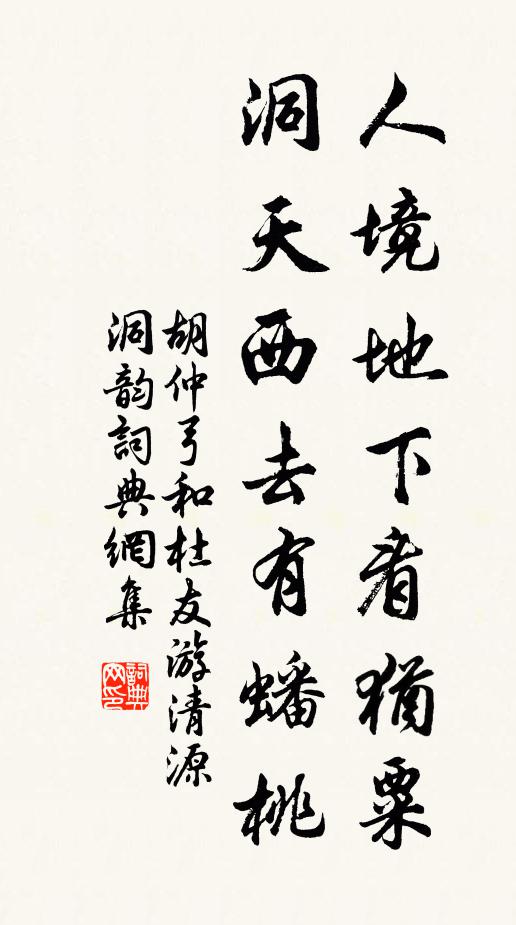 人境地下看猶粟
洞天西去有蟠桃
胡仲弓和杜友游清源
洞韵詞典網集
詞典網印